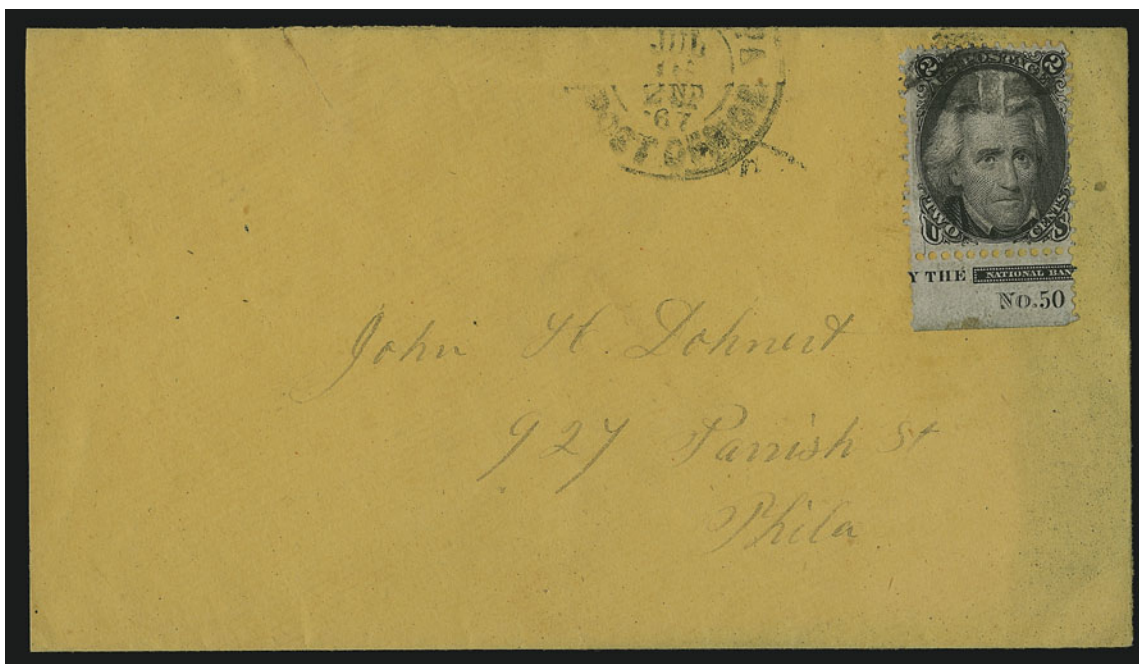 JUL
18
'67
POST OFFICE
2 U.S. POSTAGE 2
TWO CENTS
U S
Y THE NATIONAL BAN
No.50
John H. Dohnert
927 Parrish St
Phila